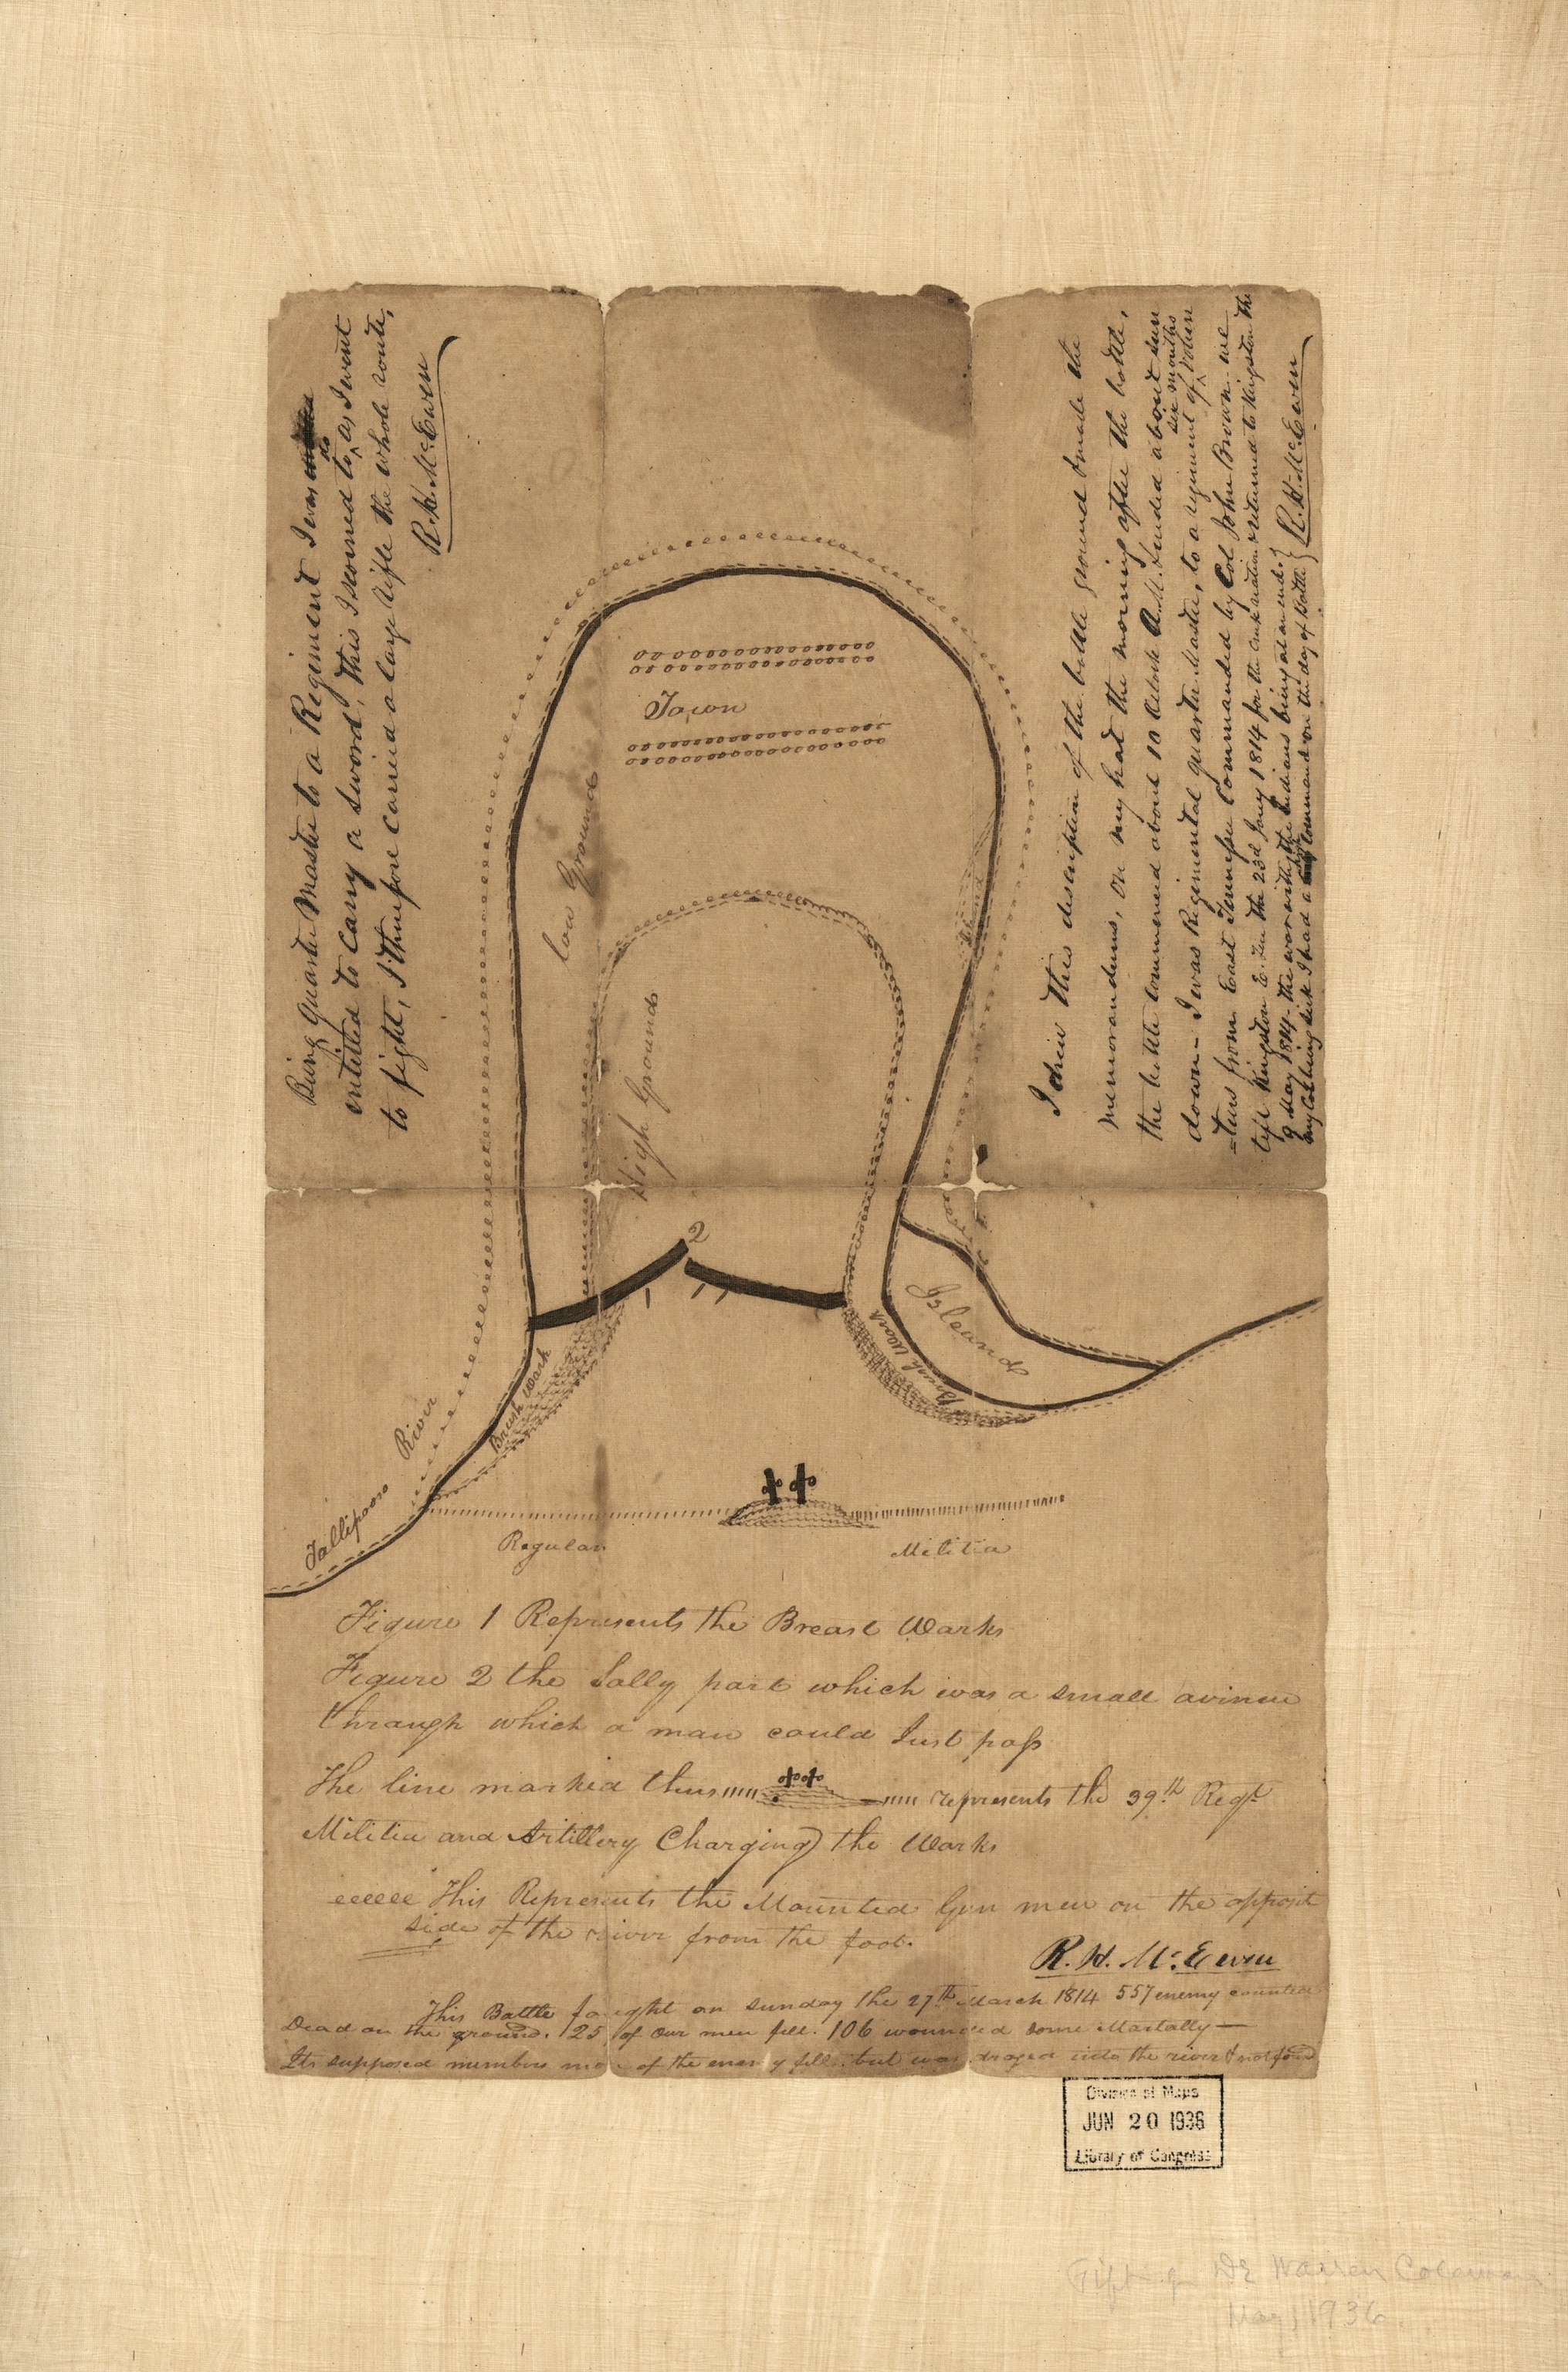 Being Quarter Master to a Regiment I was
entitled to carry a sword, this I scorned to do as I went
to fight, I therefore carried a large rifle the whole route,
R. H. McEwen
I drew this description of the battle ground & made the
memorandums, on my hat the morning after the battle,
the battle commenced about 10 Oclock A.M. & ended about sun
down - I was Regimental quarter Master, to a regiment of six months Volun
-teers from East Tennessee Commanded by Col John Brown. we
left Kingston E. Ten the 23d Jany 1814 for the & returned to Kingston the
9 May 1814 - the war with the Indians being at an end.
my being sick I had a command on the day of battle
R. H. McEwen
Town
low Ground
High Ground
Island
2
1
Island
Brush Wark
Brush Wark
Tallipoosa River
Regulars
Militia
Figure 1 Represents the Breast Warks
Figure 2 the Sally part which was a small avinue
through which a man could Just pass
The line marked thus represents the 39th Regt
Militia and Artillery Charging the Warks
eeeeee This Represents the Mounted Gun men on the opposit
side of the river from the foot.
R. H. McEwen
This Battle fought on sunday the 27th March 1814 557 enemy counted
Dead on the ground. 25 of our men fell. 106 wounded some Martally —
Its supposed numbers more of the enemy fell but was draged into the river & not found
Division of Maps
JUN 20 1936
Library of Congress
Gift of Dr Warren Coleman
May 1936